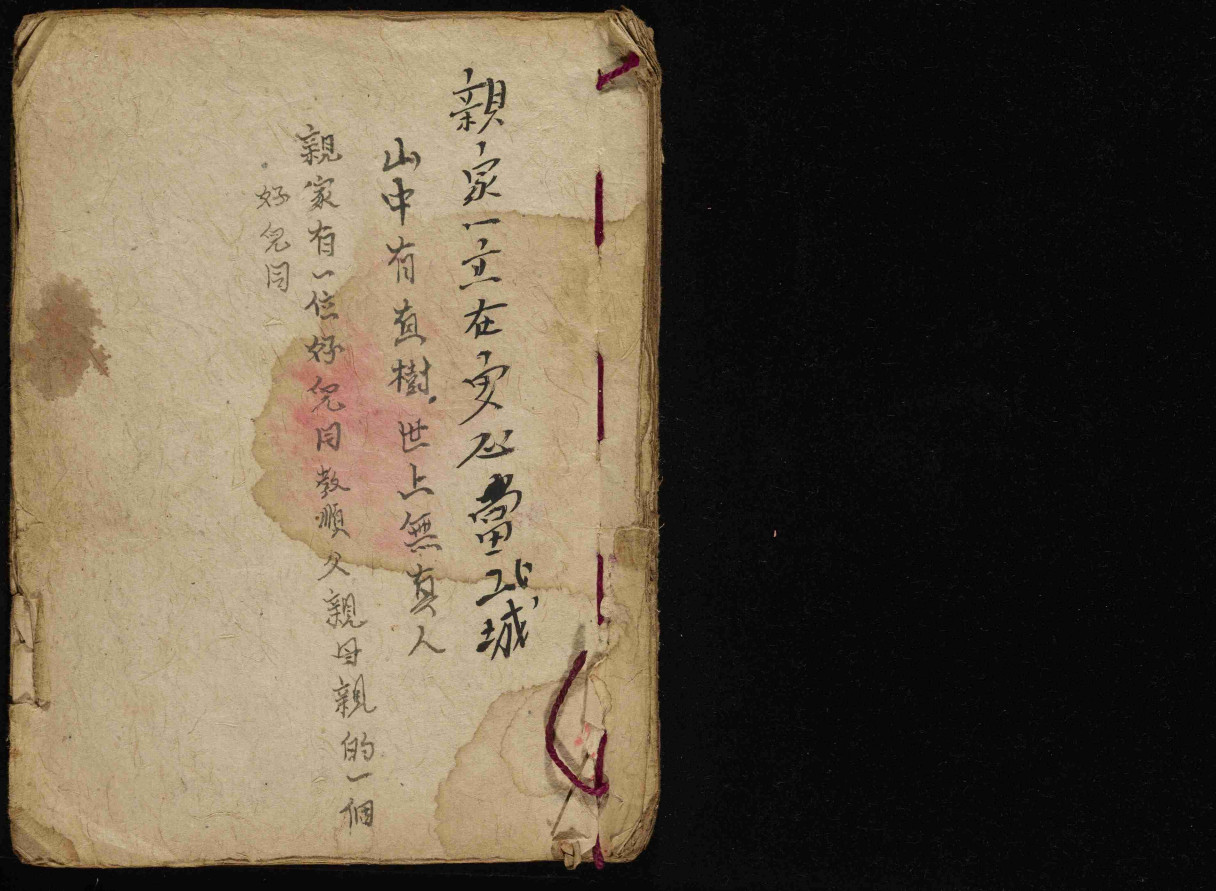 親家一立在安心當北城
山中有直樹。世上無直人
親家有一位好兒同教順父親母親的一個
好兒同